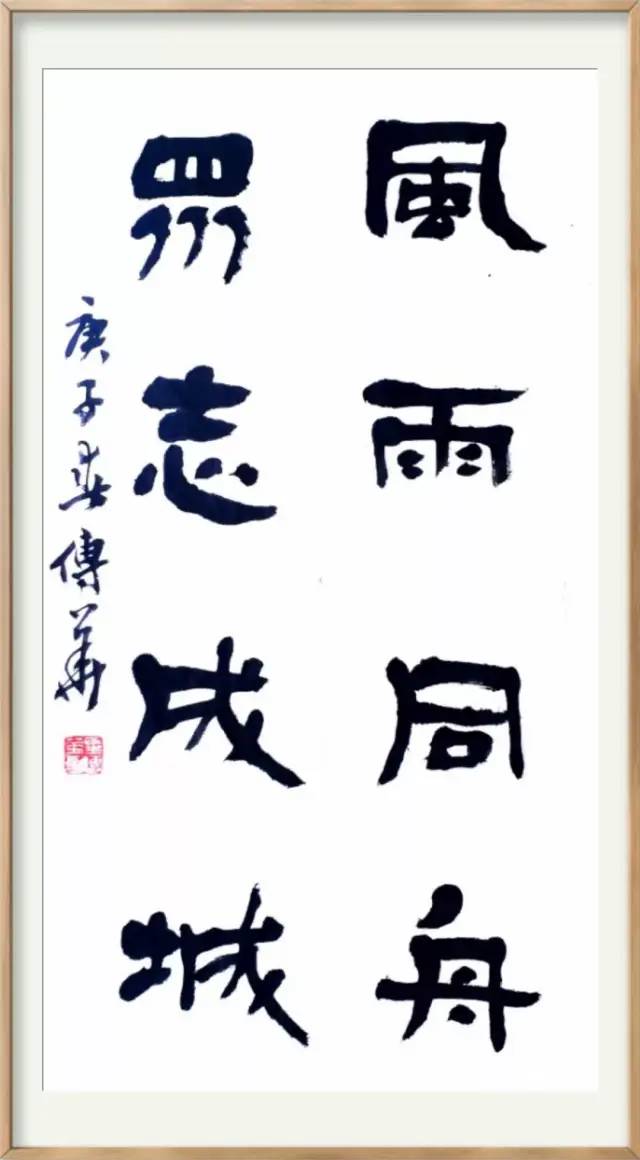 風雨同舟
眾志成城
庚子春傳華